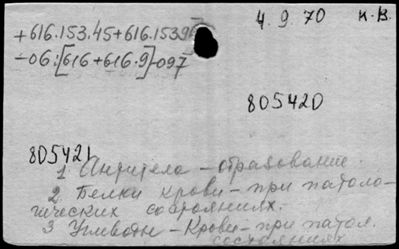 4.9.70 к.в.
+616.153.45+616.1539
-06:[616+616.9]-097
805420
805421
1 Антитела - образование.
2 Белки крови - при патоло-
гических состояниях.
3 Углеводы - Крови - при патол.
состояниях